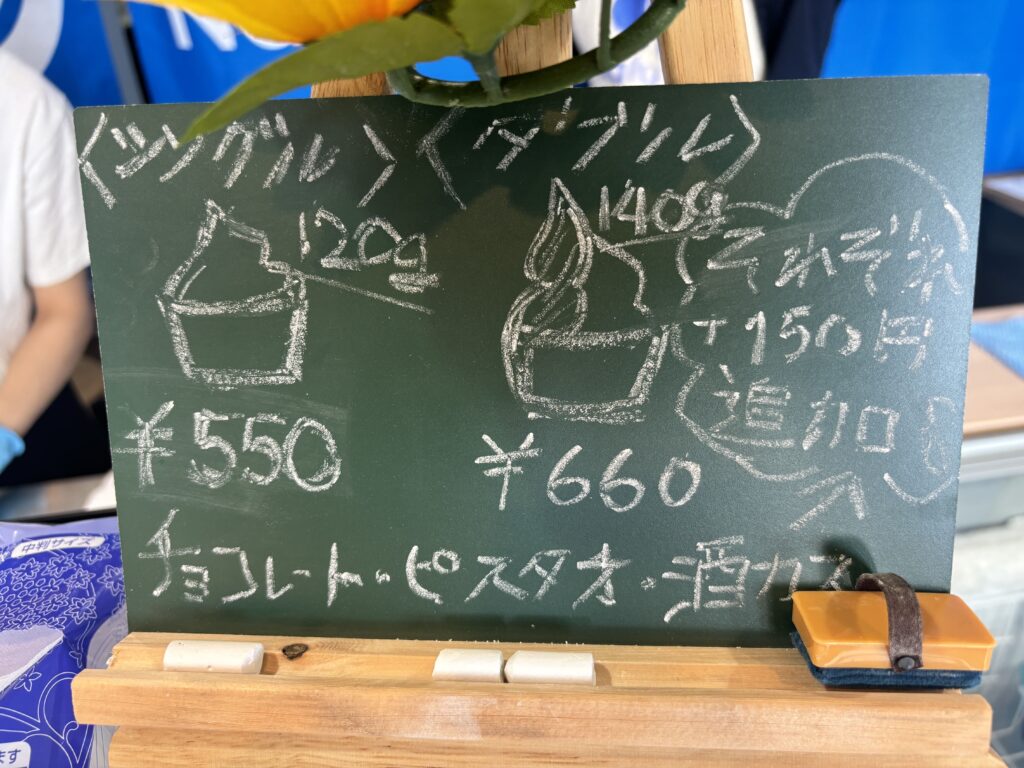 〈シングル〉 〈ダブル〉
120g 140g
それぞれ
+150円
追加
¥550 ¥660
チョコレート・ピスタオ・酒カス
中判サイズ
ます